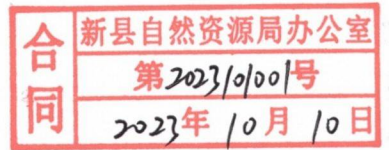 合同
新县自然资源局办公室
第2023101001号
2023年10月10日